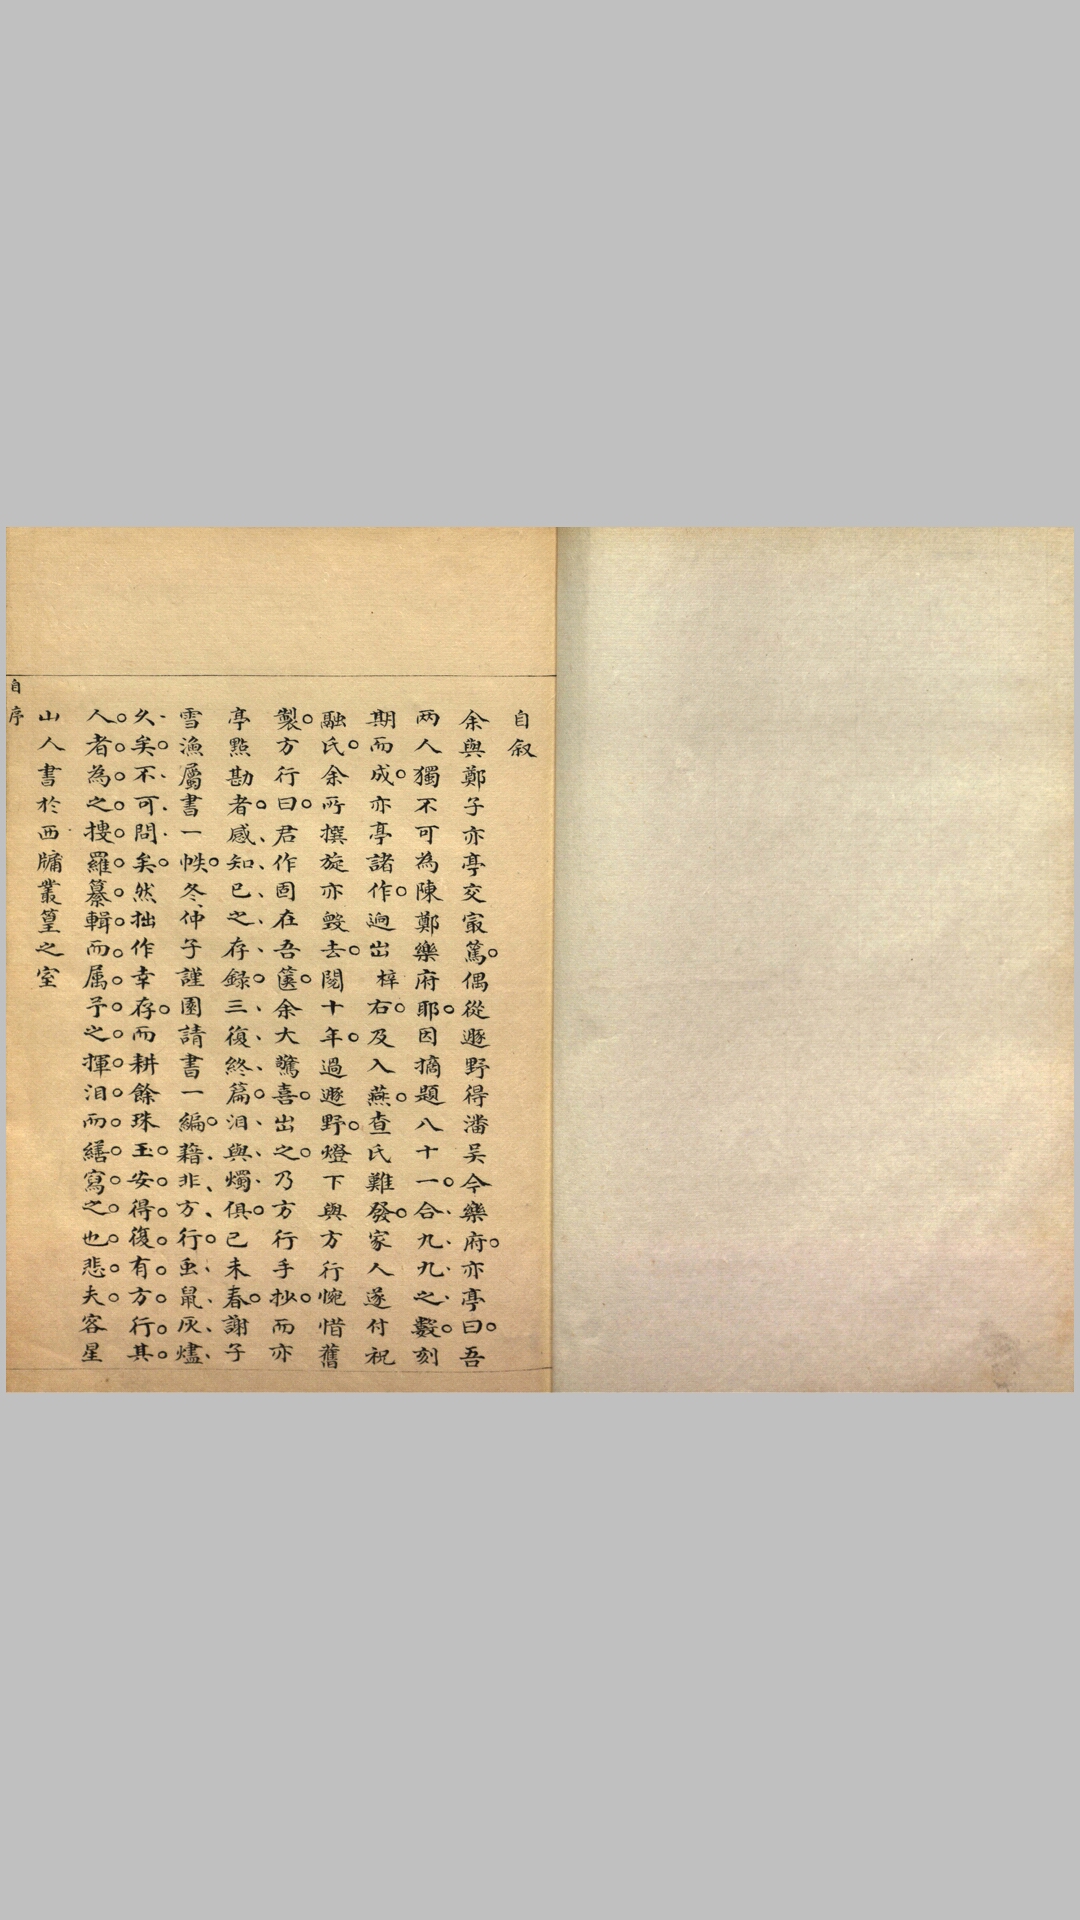 自叙
余與鄭子亦亭交㝡篤偶從遯野得潘吴今樂府亦亭曰吾
两人獨不可為陳鄭樂府耶因摘題八十一合九九之數刻
期而成亦亭諸作逈出梓右及入燕查氏難發家人遂付祝
融氏余所撰旋亦毀去閱十年過遯野燈下與方行惋惜舊
製方行曰君作固在吾篋余大驚喜出之乃方行手抄而亦
亭㸃勘者感知己之存録三復終篇泪與燭俱己未春謝子
雪漁屬書一帙冬仲子謹園請書一編藉非方行虫鼠灰燼
久矣不可問矣然拙作幸存而耕餘珠玉安得復有方行其
人者為之摟羅纂輯而属予之揮泪而繕寫之也悲夫客星
山人書於西牗叢篁之室
自序